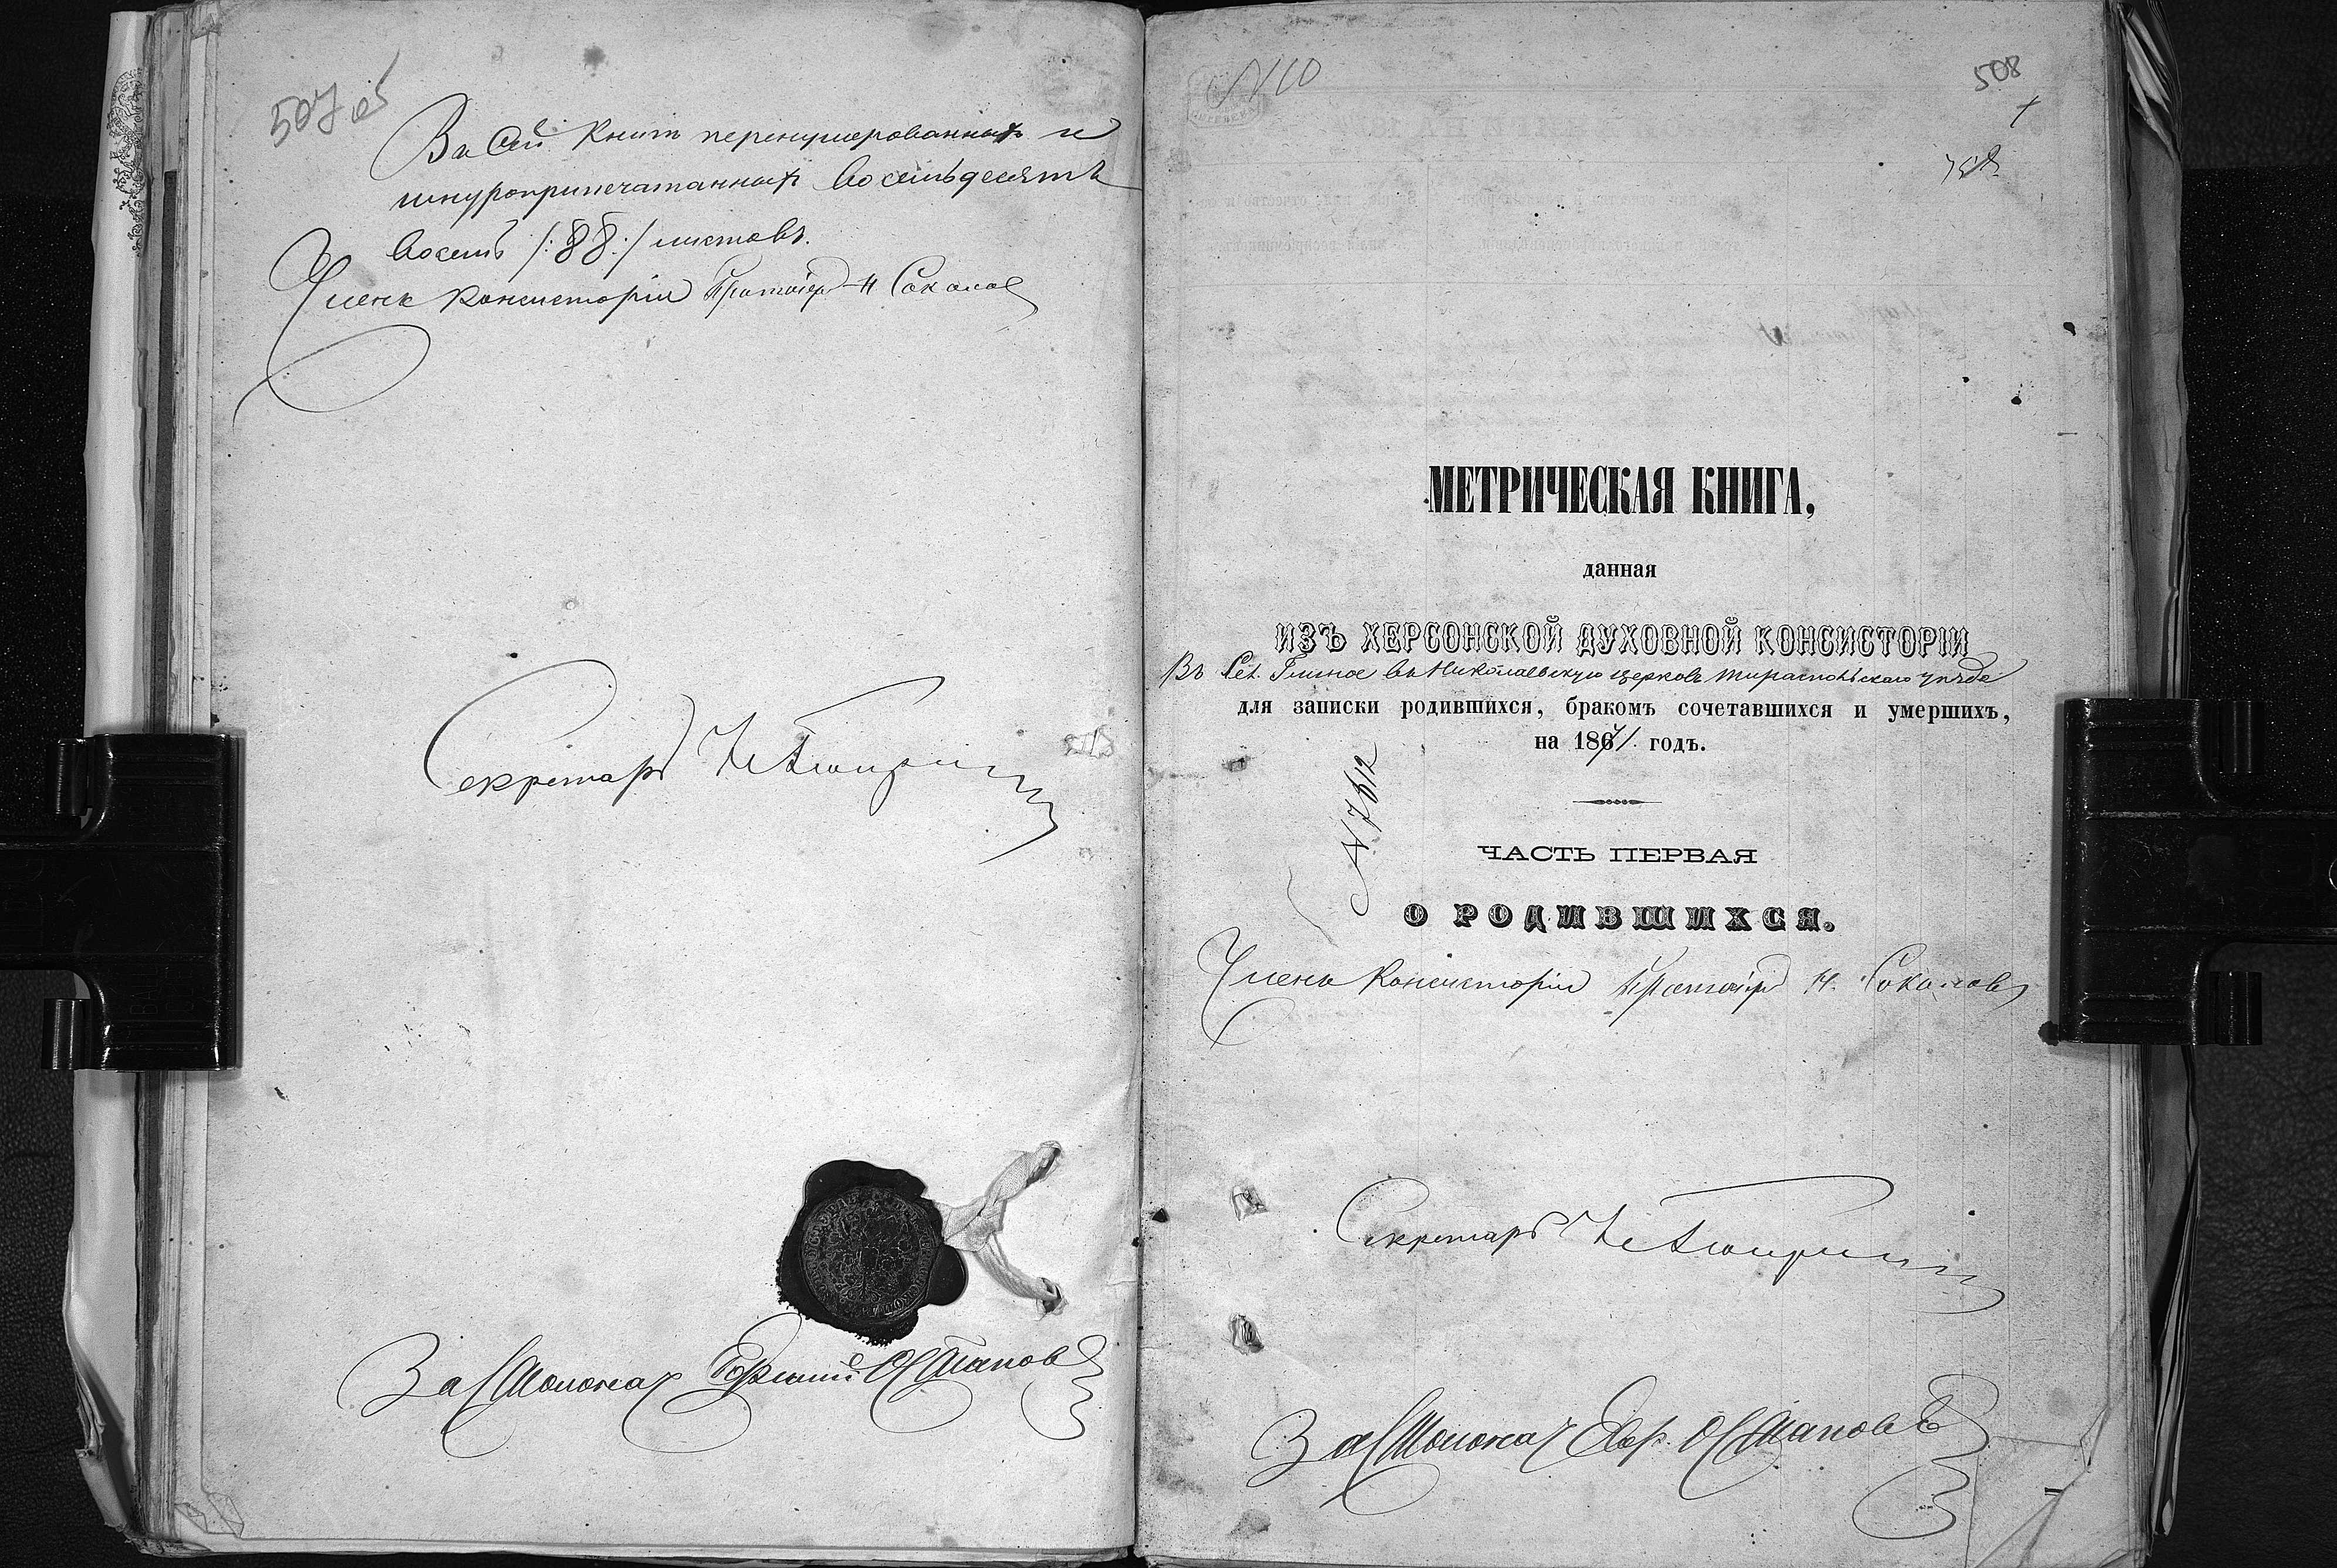 507 об
Въ сей книгѣ перенумерованныхъ и
шнуроприпечатанныхъ восемьдесятъ
восемь /:88:/ листовъ.
Членъ Консисторіи Протоіерей Н Соколов
Секретарь
За Столонач
№ 110
508
МЕТРИЧЕСКАЯ КНИГА,
данная
ИЗЪ ХЕРСОНСКОЙ ДУХОВНОЙ КОНСИСТОРІИ
Въ Сел. Глиное въ Николаевскую церковь Тираспольскаго уѣзда
для записки родившихся, бракомъ сочетавшихся и умершихъ,
на 1871 годъ.
№ 7612
ЧАСТЬ ПЕРВАЯ
О РОДИВШИХСЯ.
Членъ Консисторіи Протоіерей Н. Соколовъ
Секретарь
За Столонач